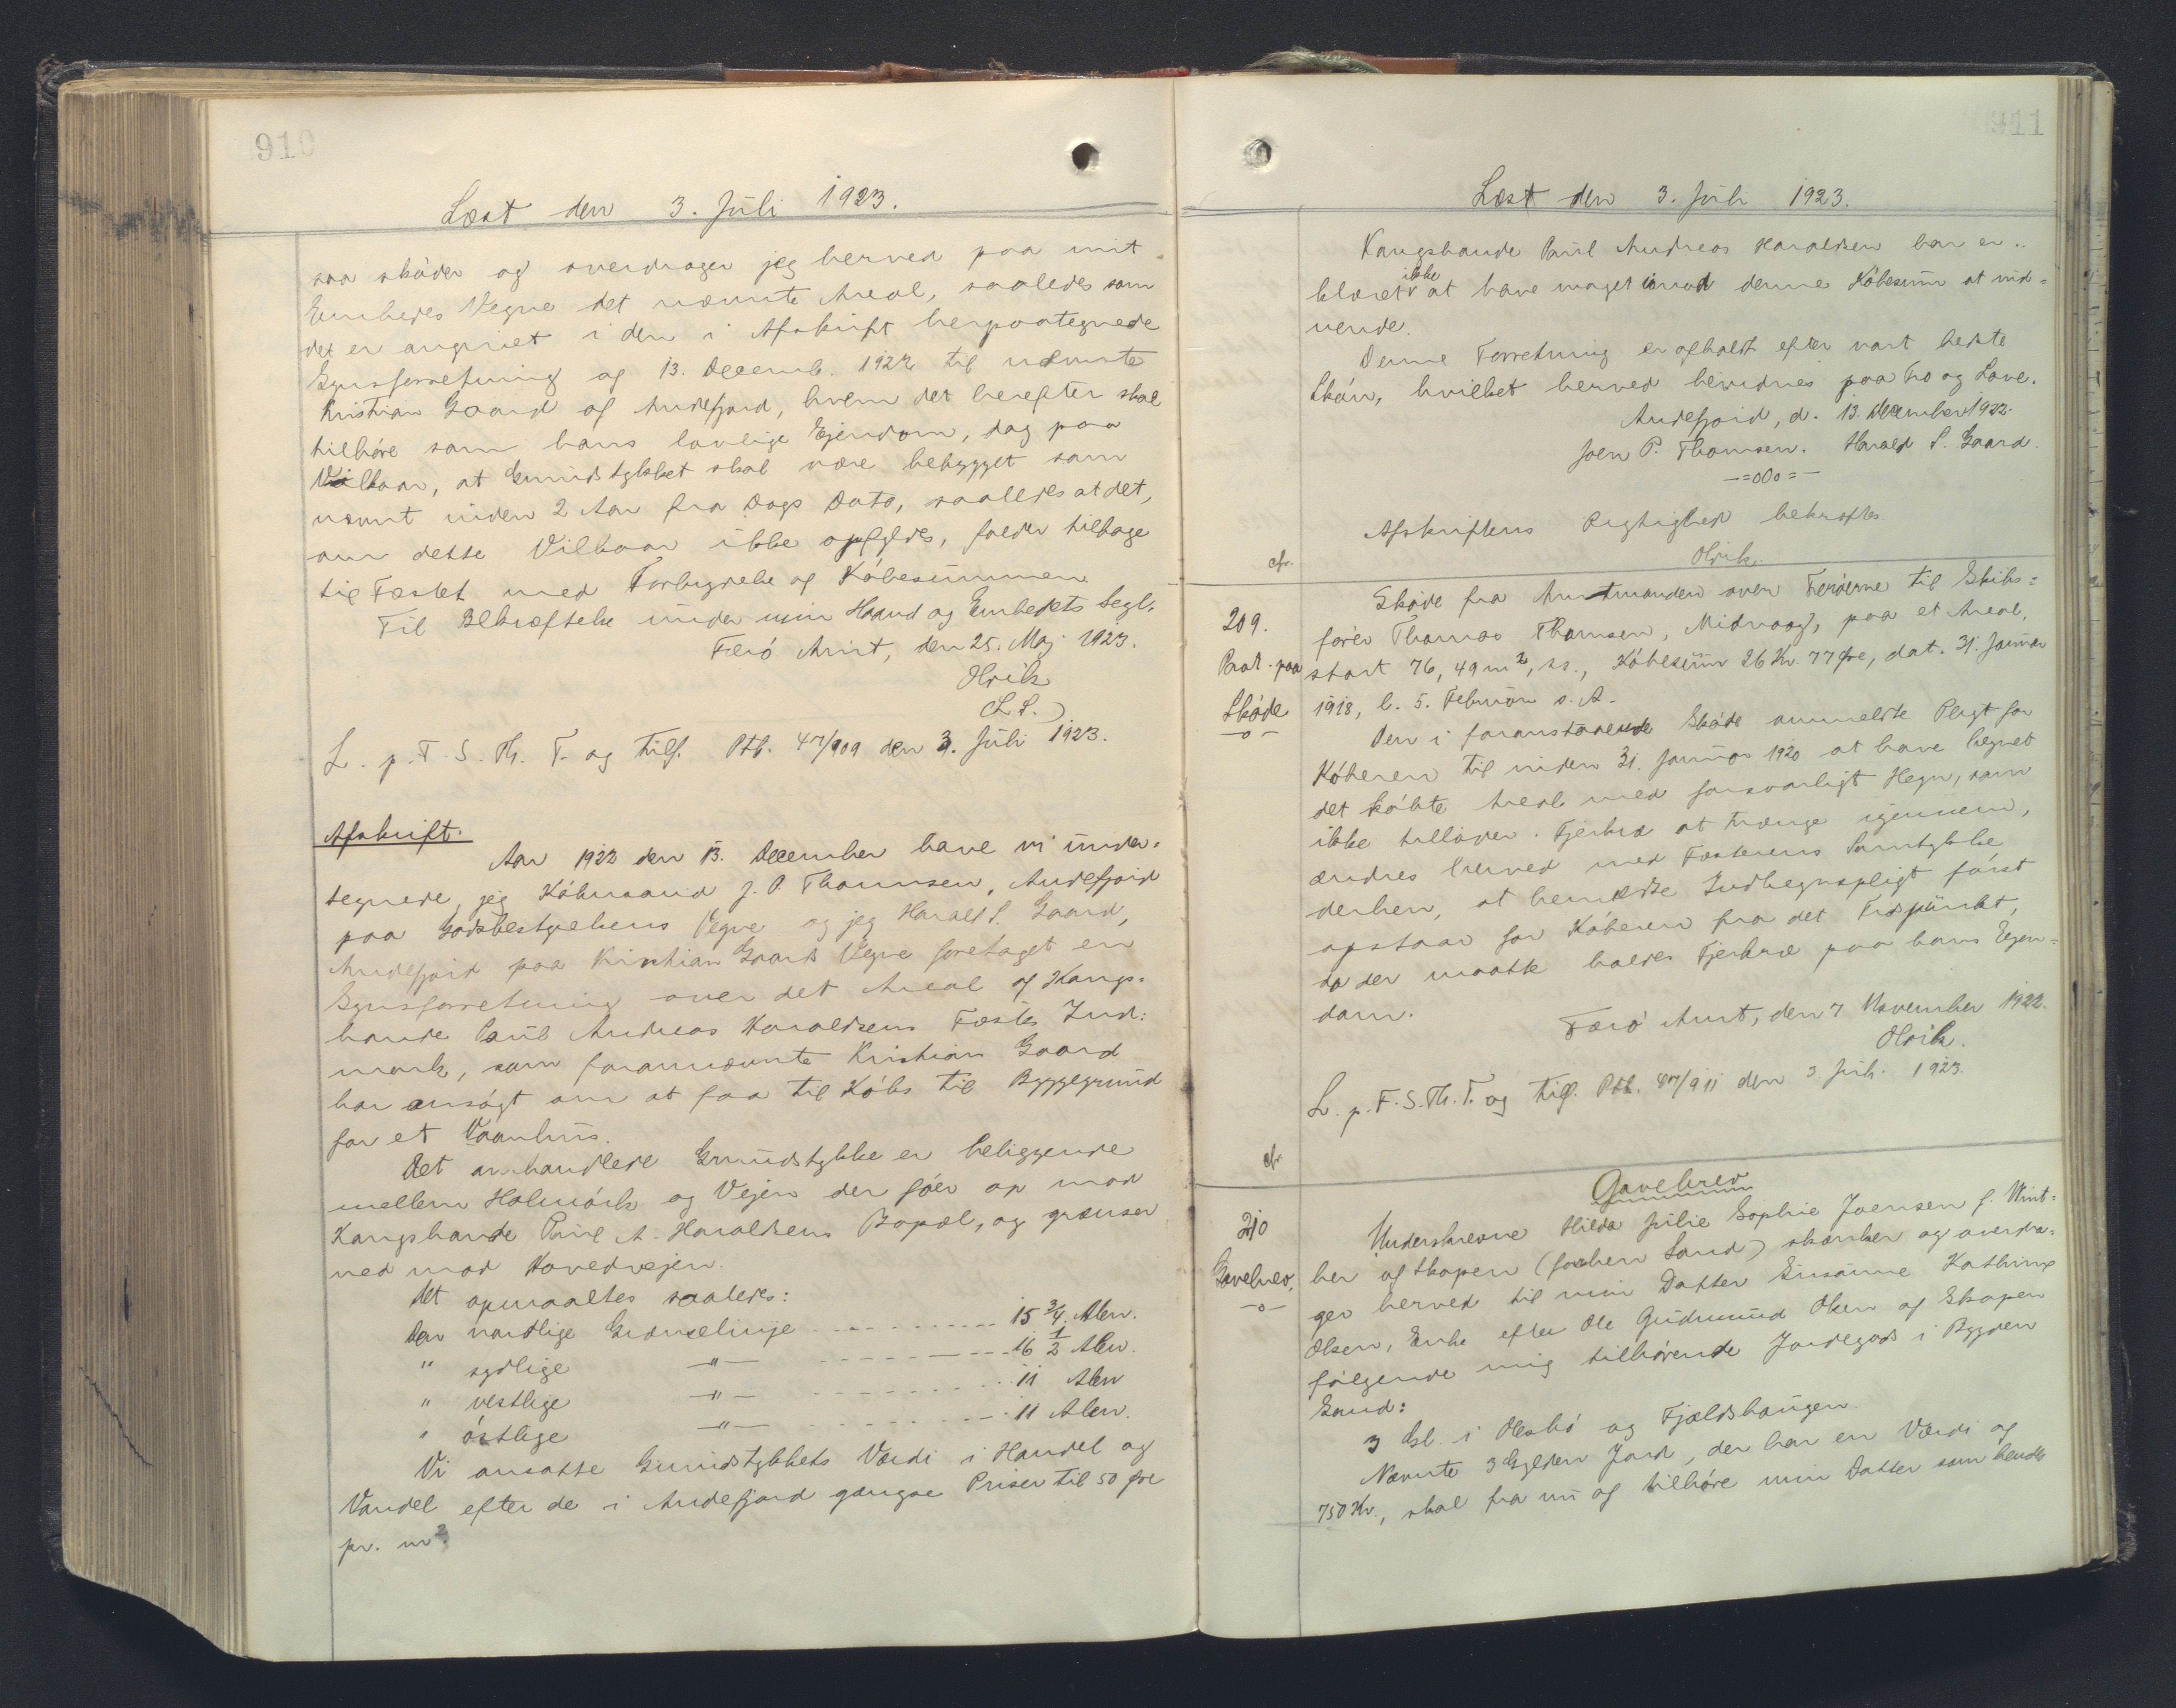 910
Læst den 3. Juli 1923.
saa skøder og overdrager jeg herved paa mit
Embedes Vegne det nævnte Areal, saaledes som
det er angivet i den i Afskrift herpaategnede
Synsforretning af 13. Decemb. 1922 til nævnte
Kristian Gaard af Andefjord, hvem det herefter skal
tilhøre som hans lovlige Ejendom, dog paa
Vilkaar, at Grundstykket skal være bebygget som
nævnt inden 2 Aar fra Dags Dato, saaledes at det,
om dette Vilkaar ikke opfyldes, falder tilbage
til Fæstet med Fortabelse af Købesummen
Til Bekræftelse under min Haand og Embedets Segl.
Færø Amt, den 25. Maj 1923.
Olrik
(L.S.)
L. p. F. S. Th. T. og tilf. Ptb. 47/909 den 3. Juli 1923.
Afskrift.
Aar 1922 den 13. December have vi under-
tegnede, jeg Købmand J. P. Thomsen, Andefjord
paa Godsbestyrelsens Vegne og jeg Harald S. Gaard,
Andefjord paa Kristian Gaards Vegne foretaget en
Synsforretning over det Areal af Kongs-
bonde Poul Andreas Haraldsens Fæstes Ind-
mark, som forannævnte Kristian Gaard
har ansøgt om at faa til Købs til Byggegrund
for et Vaanhus.
Det omhandlede Grundstykke er beliggende
mellem Holmórk og Vejen der fóer op mod
Kongsbonde Poul A. Haraldsens Bopæl, og grænser
ned mod Hovedvejen.
Det opmaaltes saaledes:
Den nordlige Grænselinje - - - - - - - - - 15 3/4 Alen.
" sydlige —"— - - - - - - - - 16 1/2 Alen.
" vestlige —"— - - - - - - - - 11 Alen
" østlige —"— - - - - - - - - 11 Alen.
Vi ansatte Grundstykkets Værdi i Handel og
Vandel efter de i Andefjord gængse Priser til 50 Øre
pr. m².
911
Læst den 3. Juli 1923.
Kongsbonde Poul Andreas Haraldsen har er-
klæret ikke at have noget imod denne Købesum at ind-
vende.
Denne Forretning er afholdt efter vort bedste
Skøn, hvilket herved bevidnes paa Tro og Love.
Andefjord, d. 13. December 1922.
Joen P. Thomsen. Harald S. Gaard.
-=o0o=-
Afskriftens Rigtighed bekræftes
Olrik.
cfr.
209.
Paat. paa
Skøde
—o—
Skøde fra Amtmanden over Færøerne til Skibs-
fører Thomas Thomsen, Midvaag, paa et Areal,
stort 76,49 m², ss., Købesum 26 Kr. 77 Øre, dat. 31. Januar
1918, l. 5. Februar s. A.
Den i foranstaaende Skøde ommeldte Pligt for
Køberen til inden 31. Januar 1920 at have hegnet
det købte Areal med forsvarligt Hegn, som
ikke tillader Fjerkræ at trænge igennem,
ændres herved med Fæsterens Samtykke
derhen, at bemeldte Indhegnspligt først
opstaar for Køberen fra det Tidspunkt,
da der maatte holdes Fjerkræ paa hans Ejen-
dom.
Færø Amt, den 7 November 1922.
Olrik.
L. p. F. S. Th. T. og tilf. Ptb. 47/911 den 3. Juli 1923.
cfr.
210
Gavebrev.
—o—
Gavebrev
Underskrevne Hilda Julie Sophie Joensen f. Wint-
her af Skopen (forhen Sand) skænker og overdra-
ger herved til min Datter Susanne Kathrine
Olsen, Enke efter Ole Gudmund Olsen af Skopen
følgende mig tilhørende Jordegods i Bygden
Sand:
3 Gl. i Olesbó og Fjaldshaugen.
Nævnte 3 Gylden Jord, der har en Værdi af
750 Kr., skal fra nu af tilhøre min Datter som hendes